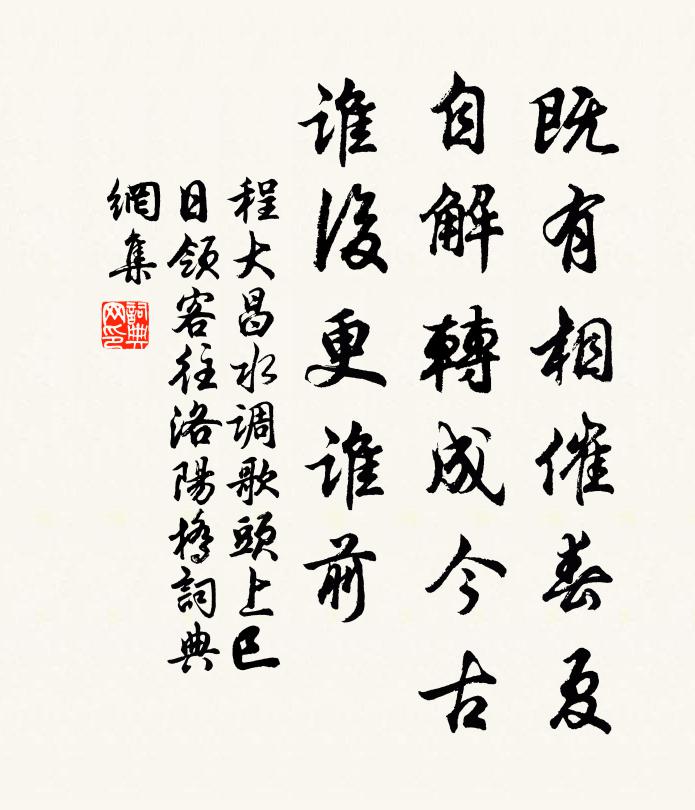 既有相催春夏
自解轉成今古
誰後更誰前
程大昌水调歌頭上巳
日領客往洛陽橋詞典
網集
詞典
网印